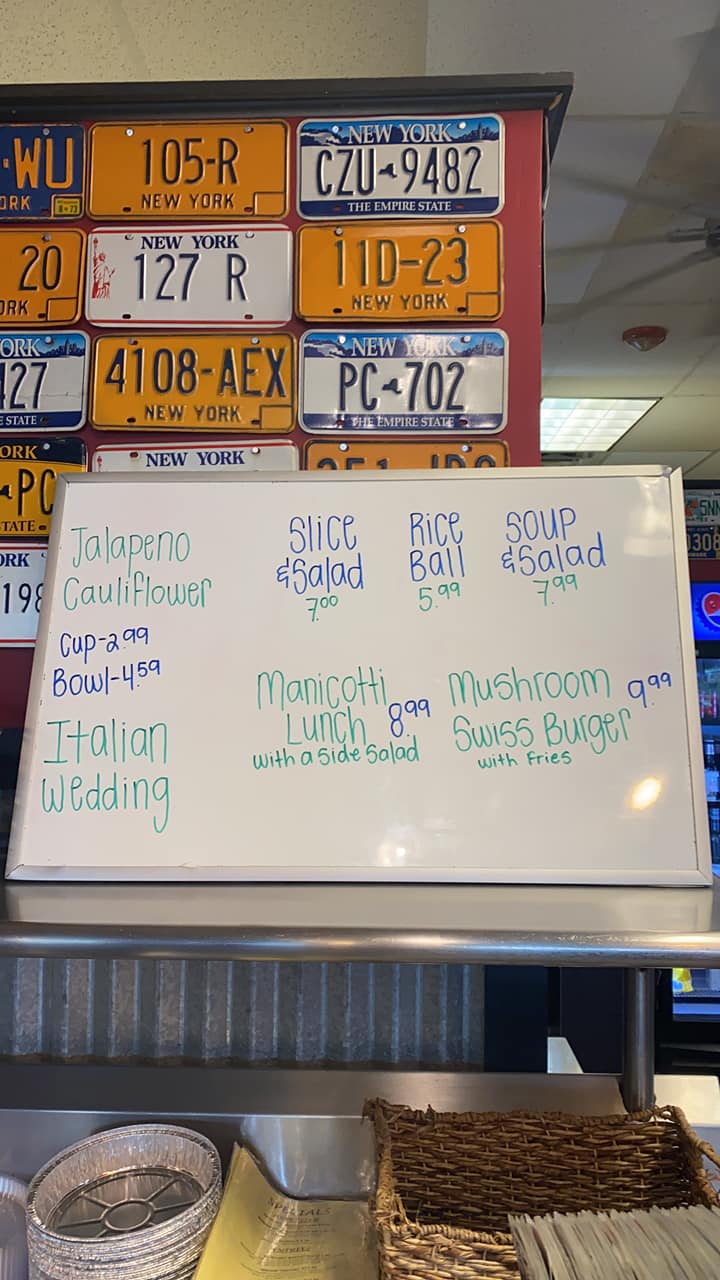 WU
ORK
105-R
NEW YORK
NEW YORK
CZU 9482
THE EMPIRE STATE
20
ORK
NEW YORK
127 R
11D-23
NEW YORK
ORK
427
E STATE
4108-AEX
NEW YORK
NEW YORK
PC 702
THE EMPIRE STATE
ORK
PC
TATE
NEW YORK
ORK
198
Jalapeno
Cauliflower
Cup-2.99
Bowl-4.59
Italian
Wedding
Slice
&Salad
7.00
Rice
Ball
5.99
Soup
&Salad
7.99
Manicotti
Lunch 8.99
with a Side Salad
Mushroom 9.99
Swiss Burger
with Fries
SPECIALS